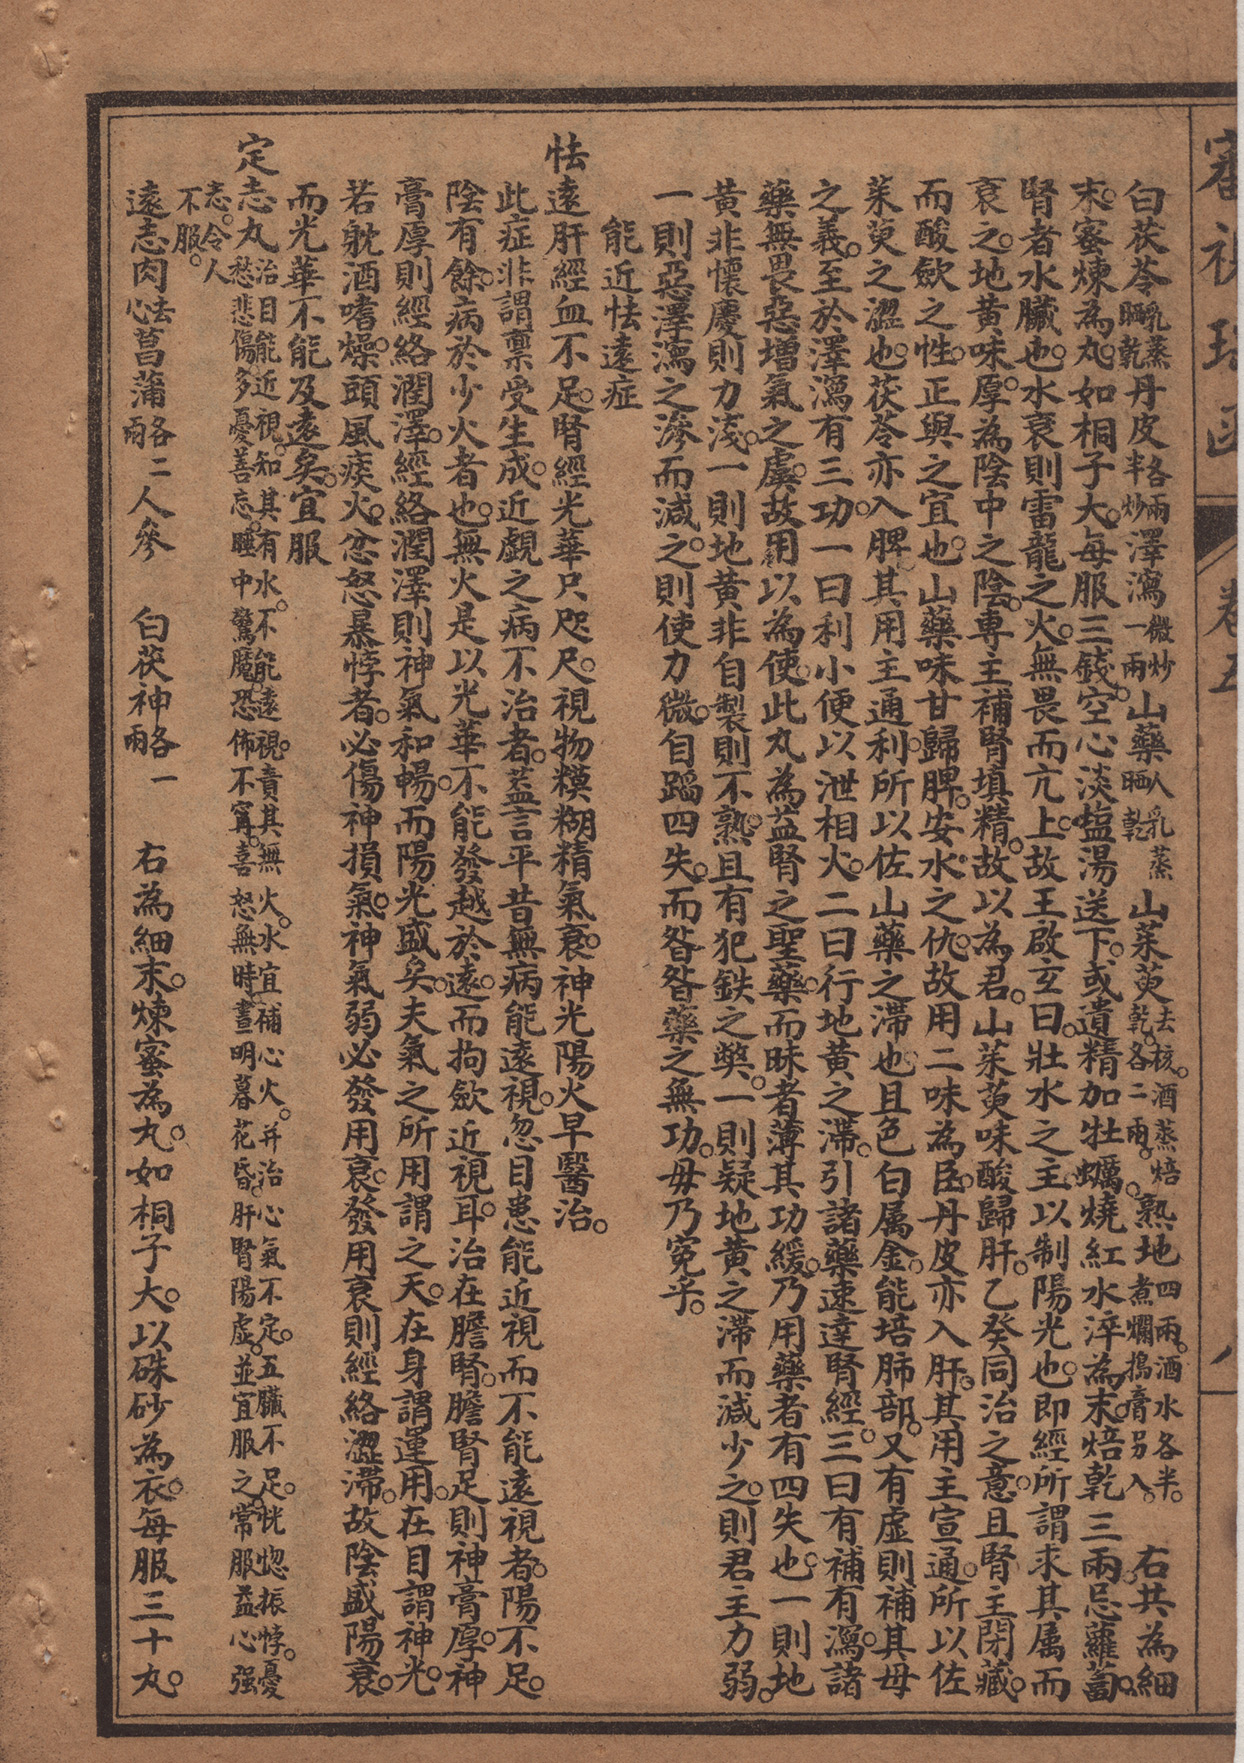 審視瑤函 卷五
白茯苓乳蒸晒乾丹皮各兩半炒澤瀉微炒一兩山藥人乳蒸晒乾山茱萸去核。酒蒸焙乾。各二兩。熟地四兩。酒水各半。煮爛搗膏另入。右共為細
末。蜜煉為丸。如桐子大。每服三錢。空心淡塩湯送下。或遺精加牡蠣燒紅水淬為末。焙乾三兩。忌蘿蔔。
腎者水臟也。水衰則雷龍之火。無畏而亢上。故王啟玄曰。壯水之主。以制陽光也。即經所謂求其属而
衰之。地黃味厚。為陰中之陰。專主補腎填精。故以為君。山茱萸味酸歸肝。乙癸同治之意。且腎主閉藏。
而酸歛之性。正與之宜也。山藥味甘歸脾。安水之仇。故用二味為臣。丹皮亦入肝。其用主宣通。所以佐
茱萸之澀也。茯苓亦入脾。其用主通利。所以佐山藥之滯也。且色白属金。能培肺部。又有虛則補其母
之義。至於澤瀉有三功。一曰利小便以泄相火。二曰行地黃之滯。引諸藥速達腎經。三曰有補有瀉。諸
藥無畏惡增氣之虞。故用以為使。此丸為益腎之聖藥。而昧者薄其功緩。乃用藥者有四失也。一則地
黃非懷慶則力淺。一則地黃非自製則不熟。且有犯鉄之獘。一則疑地黃之滯而減少之。則君主力弱。
一則惡澤瀉之滲而減之。則使力微。自蹈四失。而咎咎藥之無功。毋乃冤乎。
能近怯遠症
怯遠肝經血不足。腎經光華只咫尺。視物糢糊精氣衰。神光陽火早醫治。
此症非謂稟受生成。近覷之病不治者。葢言平昔無病能遠視。忽目患能近視而不能遠視者。陽不足。
陰有餘。病於少火者也。無火是以光華不能發越於遠。而拘歛近視耳。治在膽腎。膽腎足則神膏厚。神
膏厚則經絡潤澤。經絡潤澤則神氣和暢。而陽光盛矣。夫氣之所用謂之天。在身謂運用。在目謂神光。
若躭酒嗜燥。頭風痰火。忿怒暴悖者。必傷神損氣。神氣弱必發用衰。發用衰則經絡澀滯。故陰盛陽衰。
而光華不能及遠矣。宜服
定志丸治目能近視。知其有水。不能遠視。責其無火。水宜補心火。并治心氣不定。五臟不足。恍惚振悸。憂愁悲傷。多憂善忘。睡中驚魘。恐怖不寗。喜怒無時。晝明暮花昏。肝腎陽虛。並宜服之。常服益心强
志。令人不服。
遠志肉去心菖蒲各二兩人參 白茯神各一兩 右為細末。煉蜜為丸。如桐子大。以硃砂為衣。每服三十丸。